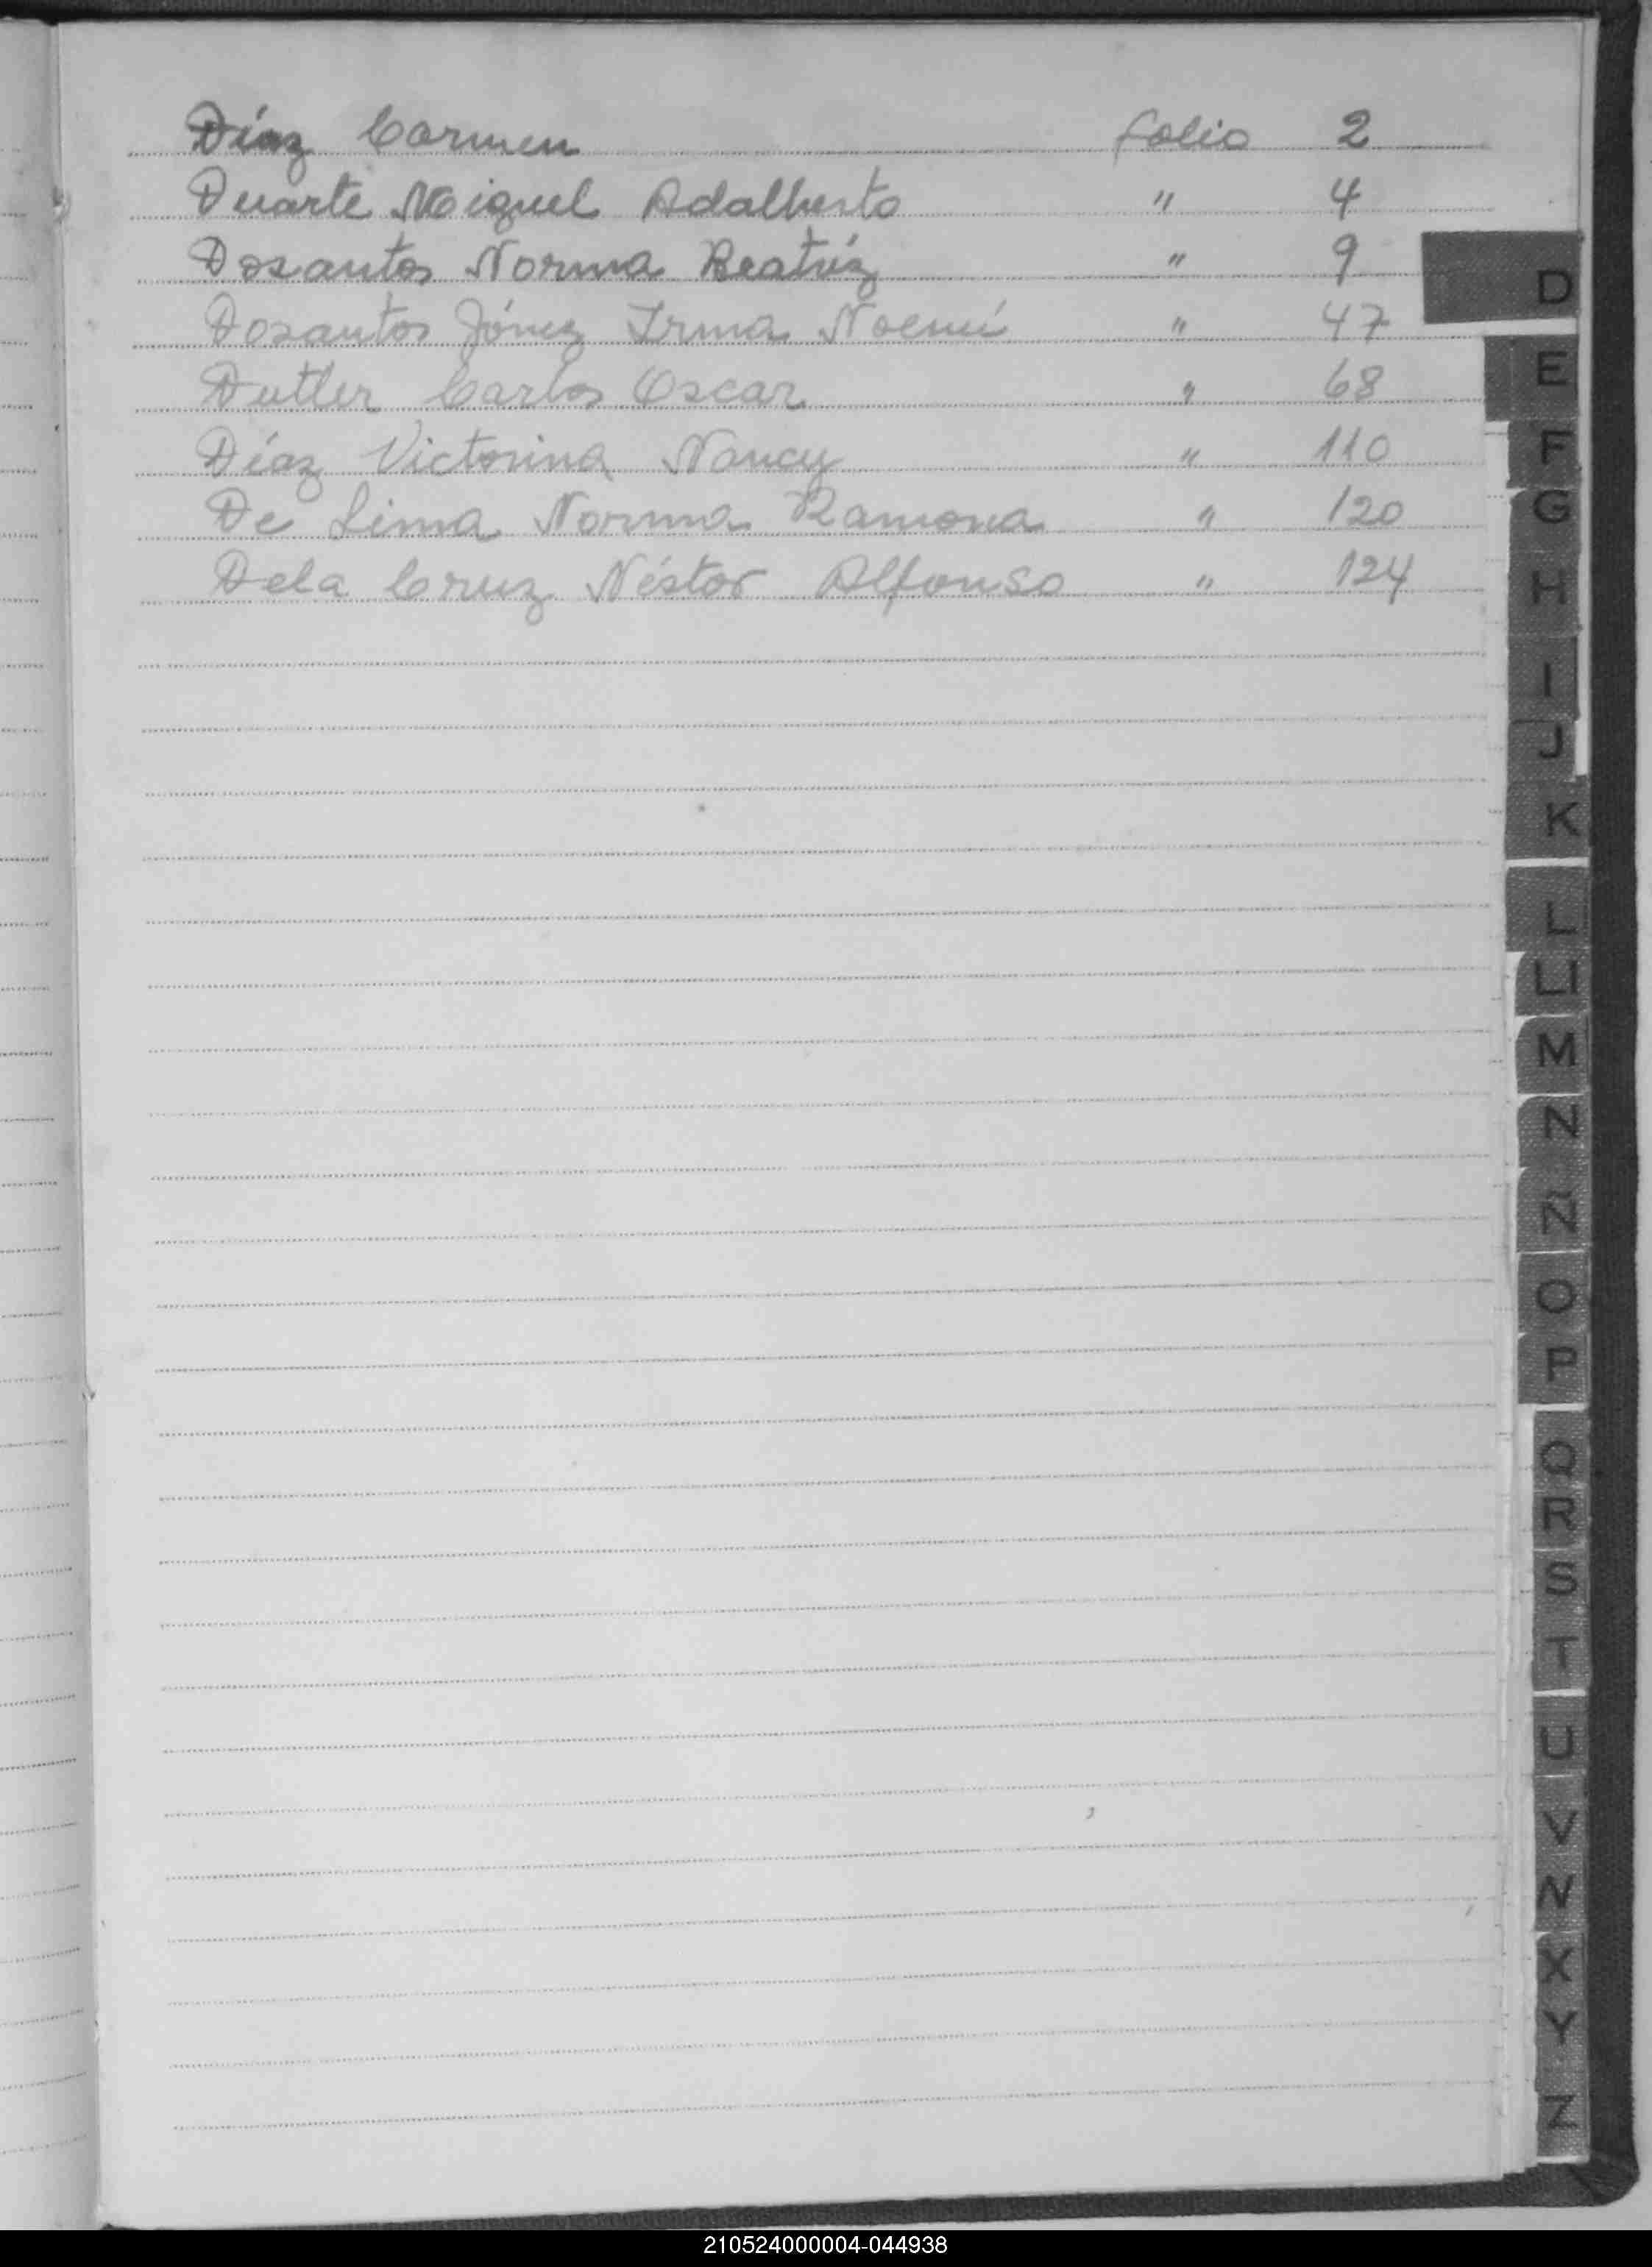 Díaz Carmen folio 2
Duarte Miguel Adalberto " 4
Dosantos Norma Beatríz " 9
Dosantos Irma Noemí " 47
Dutler Carlos Oscar " 68
Díaz Victorina Nancy " 110
De Lima Norma Ramona " 120
Dela Cruz Néstor Alfonso " 124
D
E
F
G
H
I
J
K
L
Ll
M
N
Ñ
O
P
Q
R
S
T
U
V
W
X
Y
Z
210524000004-044938